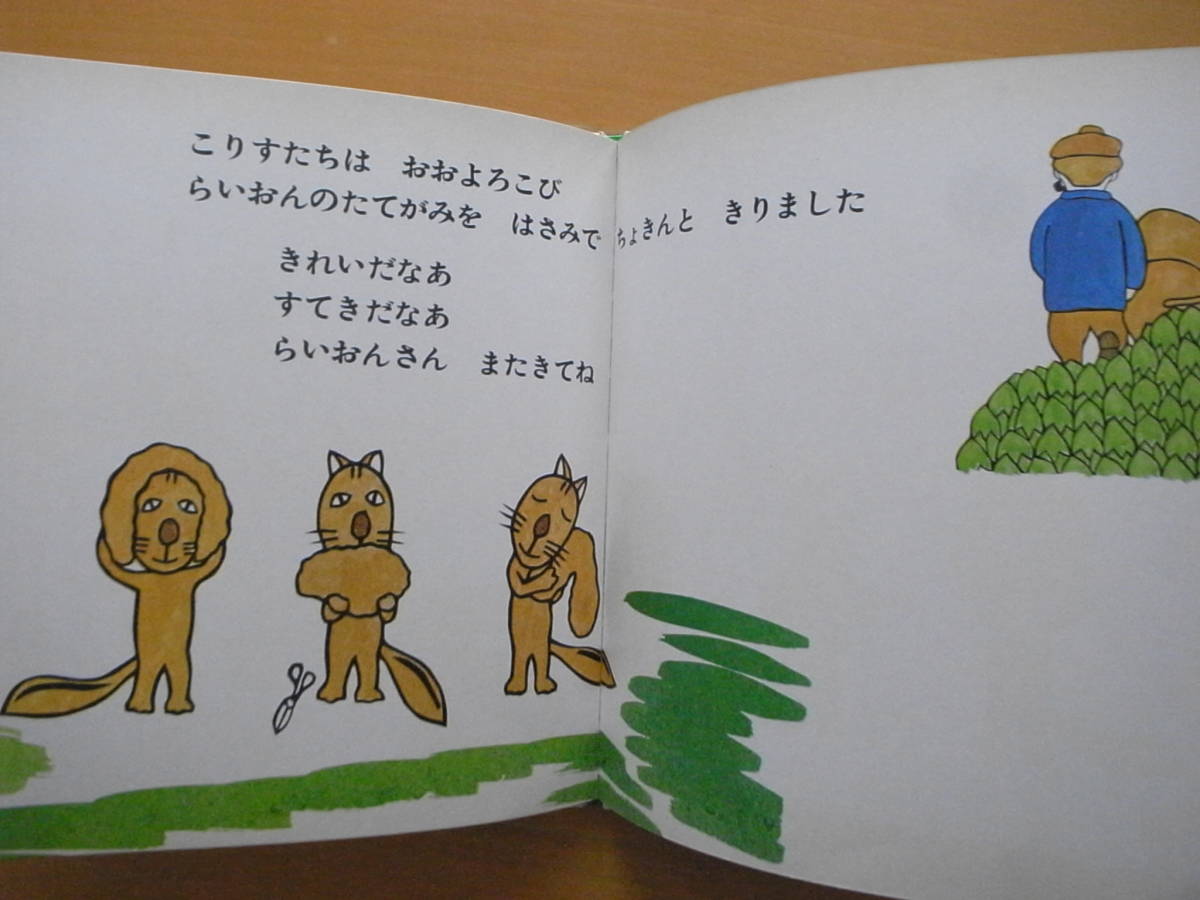 こりすたちは　おおよろこび
らいおんのたてがみを　はさみで　ちょきんと　きりました
きれいだなあ
すてきだなあ
らいおんさん　またきてね